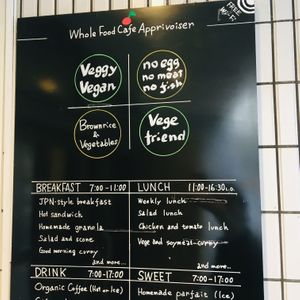 FREE
Wi-Fi
Whole Food Cafe Apprivoiser
Veggy
Vegan
no egg
no meat
no fish
Brownrice
&
Vegetables
Vege
friend
BREAKFAST 7:00-11:00
JPN-style breakfast
Hot sandwich
Homemade granola
Salad and scone
Good morning curry
and more...
LUNCH 11:00-16:30 L.O.
Weekly lunch
Salad lunch
Chicken and tomato lunch
Vege and soymeat curry
and more...
DRINK 7:00-17:00
Organic Coffee (Hot or Ice)
SWEET 7:00-17:00
Homemade parfait (Ice)